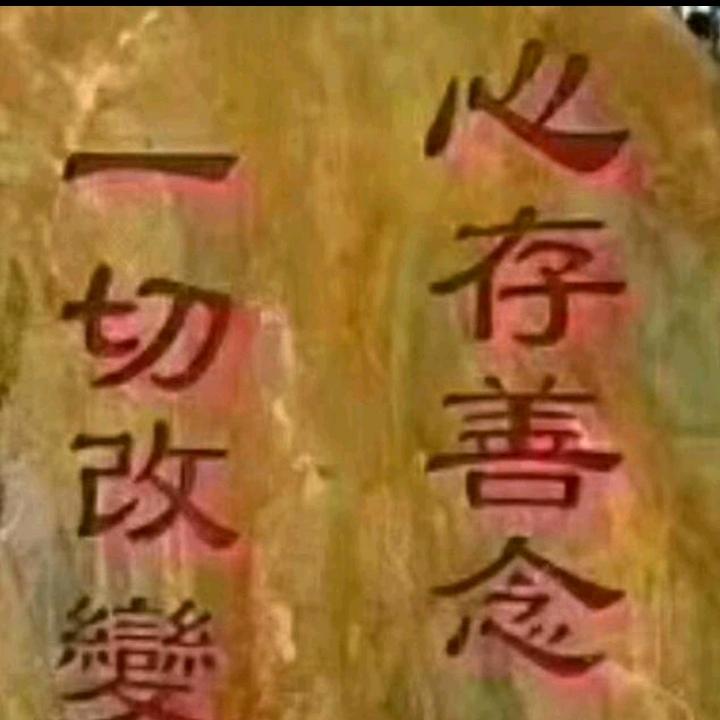 心存善念
一切改變